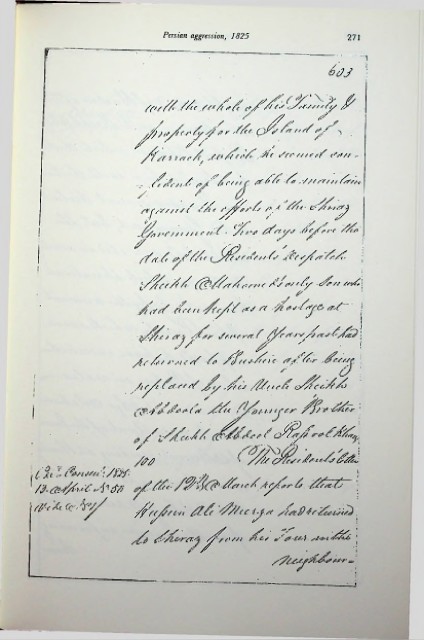 Persian aggression, 1825 271
603
with the whole of his Family &
property for the Island of
Karrack, which he seemed con-
fident of being able to maintain
against the efforts of the Shiraz
Government. Two days before the
date of the Residents despatch
Sheikh Mahomed's only son who
had been kept as a hostage at
Shiraz for several Years past had
returned to Bushire after being
replaced by his Uncle Sheikh
Abdoola the Younger Brother
of Sheikh Abdool Rassool Khan
100 The Residents letter
of the 12th March reports that
Hussein Ali Meerza had returned
to Shiraz from his Tour in the
neighbour-
Consn. 1825
13 April No 50